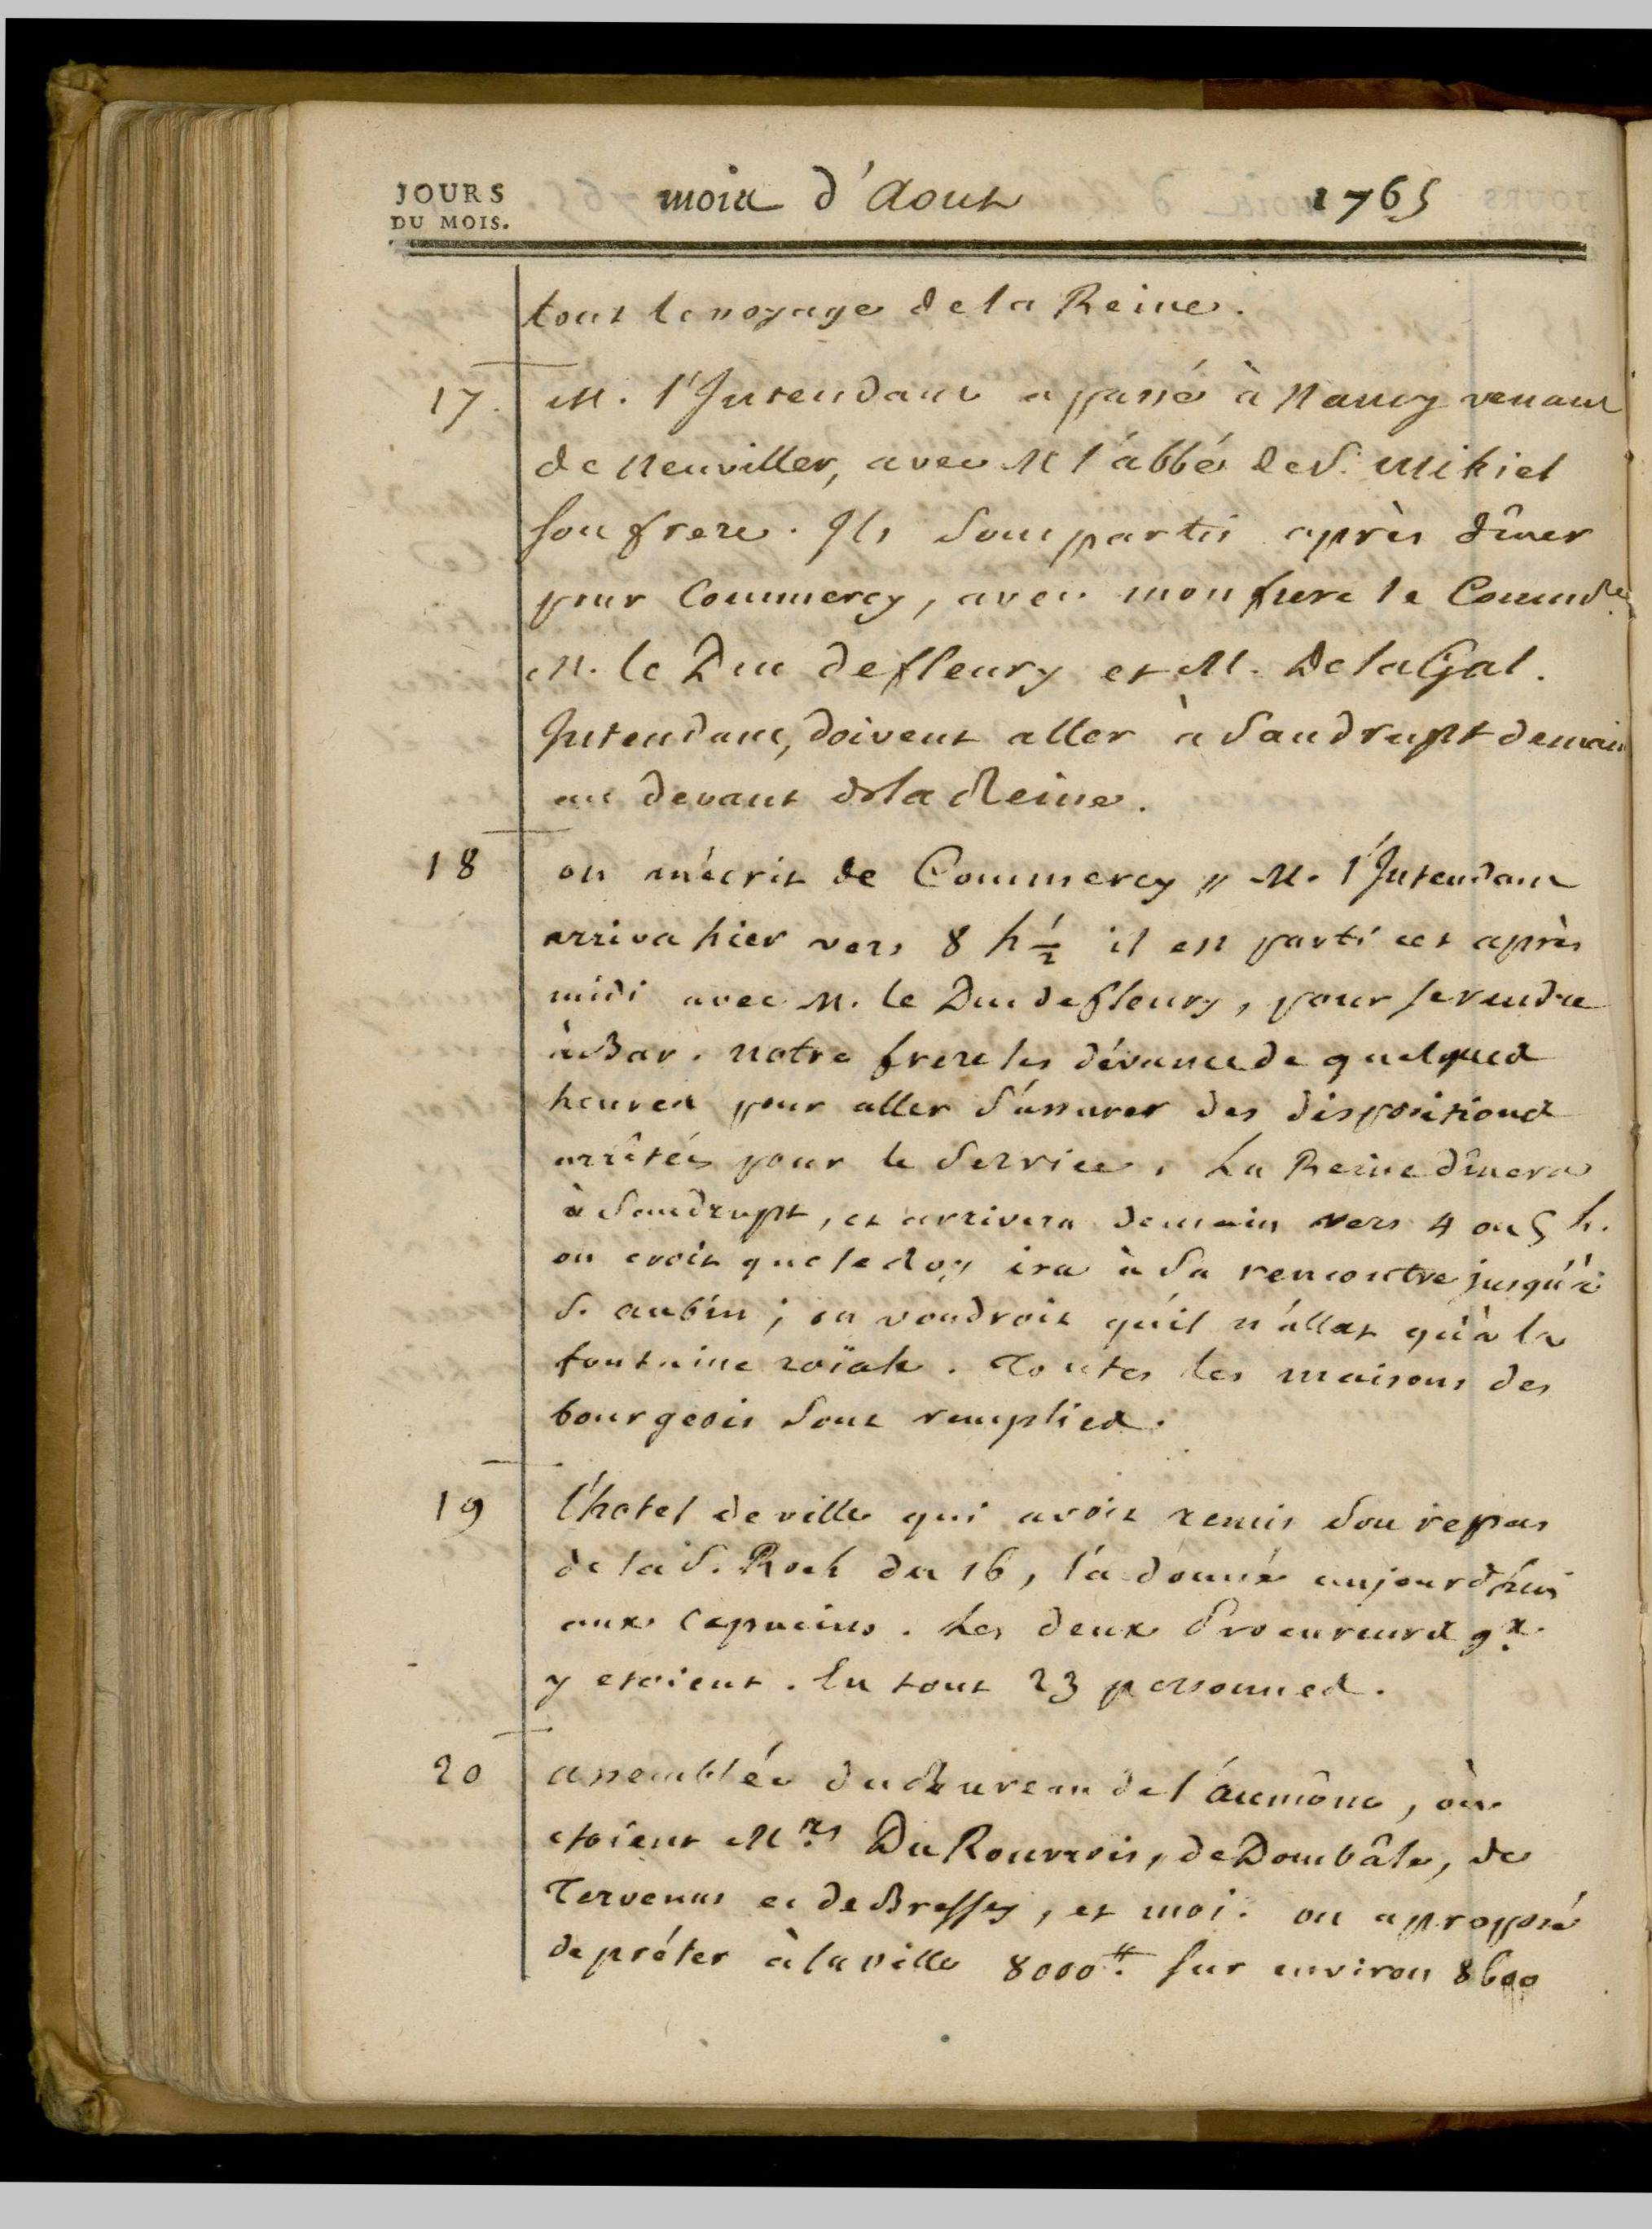 JOURS
DU MOIS.
mois d'Aout 1765
tout le voyage de la Reine.
17. M. l'Intendant a passé à Nancy venant
de Neuviller, avec M l'abbé de S. Mihiel
son frere. Ils sont partis après dîner
pour Commercy, avec mon frere le Commdr.
M. le Duc de fleury et M. De la Gal.
Intendant, doivent aller à Saudrupt demain
au devant de la Reine.
18 on m'écrit de Commercy " M. l'Intendant
arriva hier vers 8 h 1/2 il est parti cet après
midi avec M. le Duc de fleury, pour se rendre
à Bar. notre frere les dévance de quelques
heures pour aller s'assurer des dispositions
arrêtées pour le service. La Reine dînera
à Saudrupt, et arrivera demain vers 4 ou 5 h.
on croit que le Roy ira à sa rencontre jusqu'à
S. aubin; on voudroit qu'il n'allat qu'à la
fontaine roïale. Toutes les maisons des
bourgeois sont remplies.
19 l'hotel de ville qui avoit remis son repas
de la S. Roch du 16, l'a donné aujourd'hui
aux Capucins. Les deux Procureurs gx
y etoient. En tout 23 personnes.
20 assemblée du Bureau de l'aumône, où
etoient Mrs Du Rouvrois, de Dombâle, de
Tervenus et de Bressey, et moi. on a proposé
de préter à la ville 8000 ₶. sur environ 8600